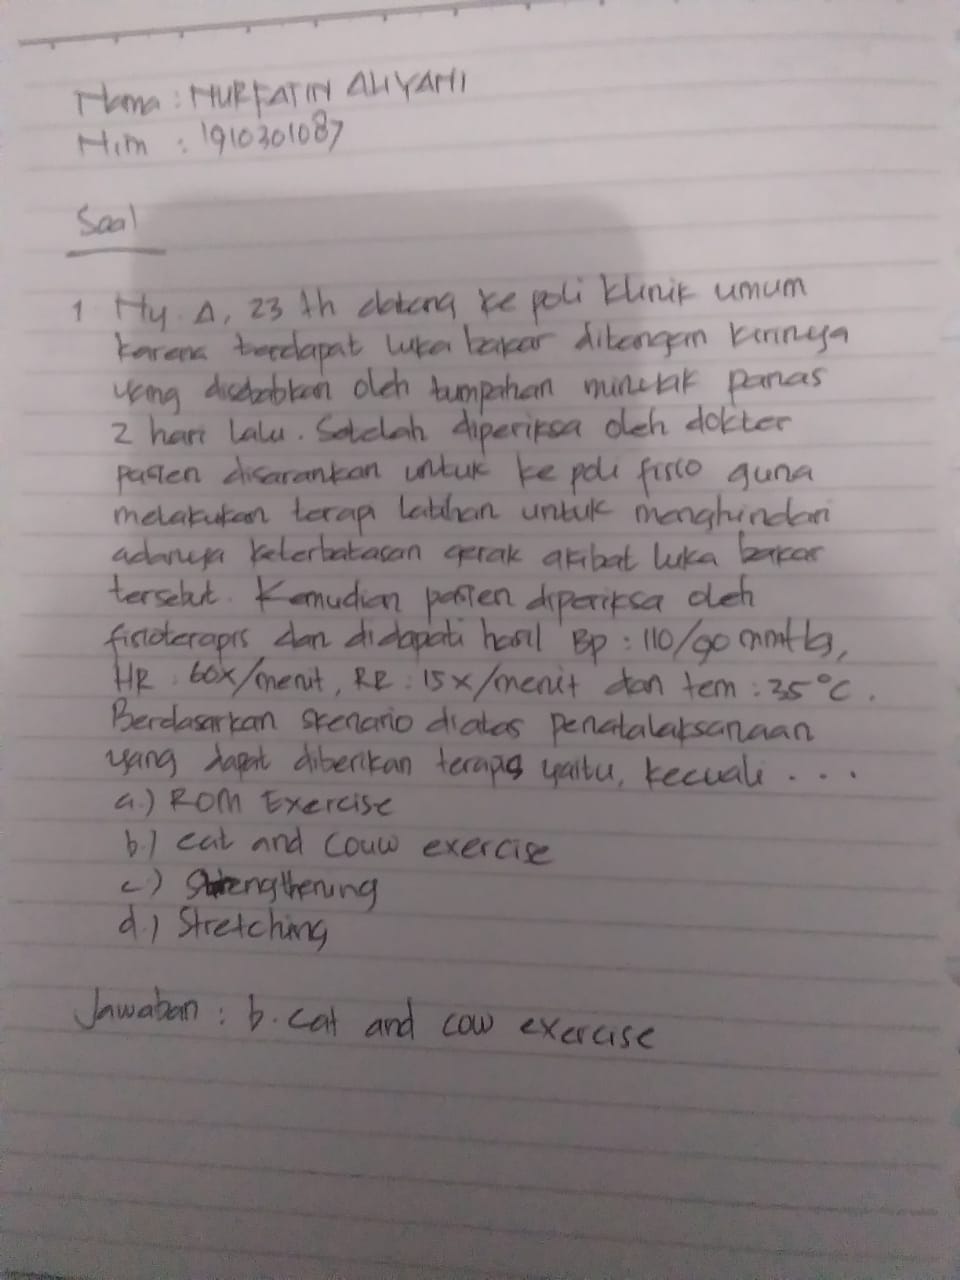 Nama : NURFATIN ALIYANI
Nim : 1910301087
Soal
1 Ny. A, 23 th datang ke poli klinik umum
karena terdapat luka bakar ditangan kirinya
yang disebabkan oleh tumpahan minyak panas
2 hari lalu. Setelah diperiksa oleh dokter
pasien disarankan untuk ke poli fisio guna
melakukan terapi latihan untuk menghindari
adanya keterbatasan gerak akibat luka bakar
tersebut. Kemudian pasien diperiksa oleh
fisioterapis dan didapati hasil Bp : 110/90 mmHg,
HR : 60x/menit, RR : 15x/menit dan tem : 35°C.
Berdasarkan skenario diatas penatalaksanaan
yang dapat diberikan terapis yaitu, kecuali . . .
a.) ROM Exercise
b.) cat and couw exercise
c.) Strengthening
d.) Stretching
Jawaban : b. cat and cow exercise